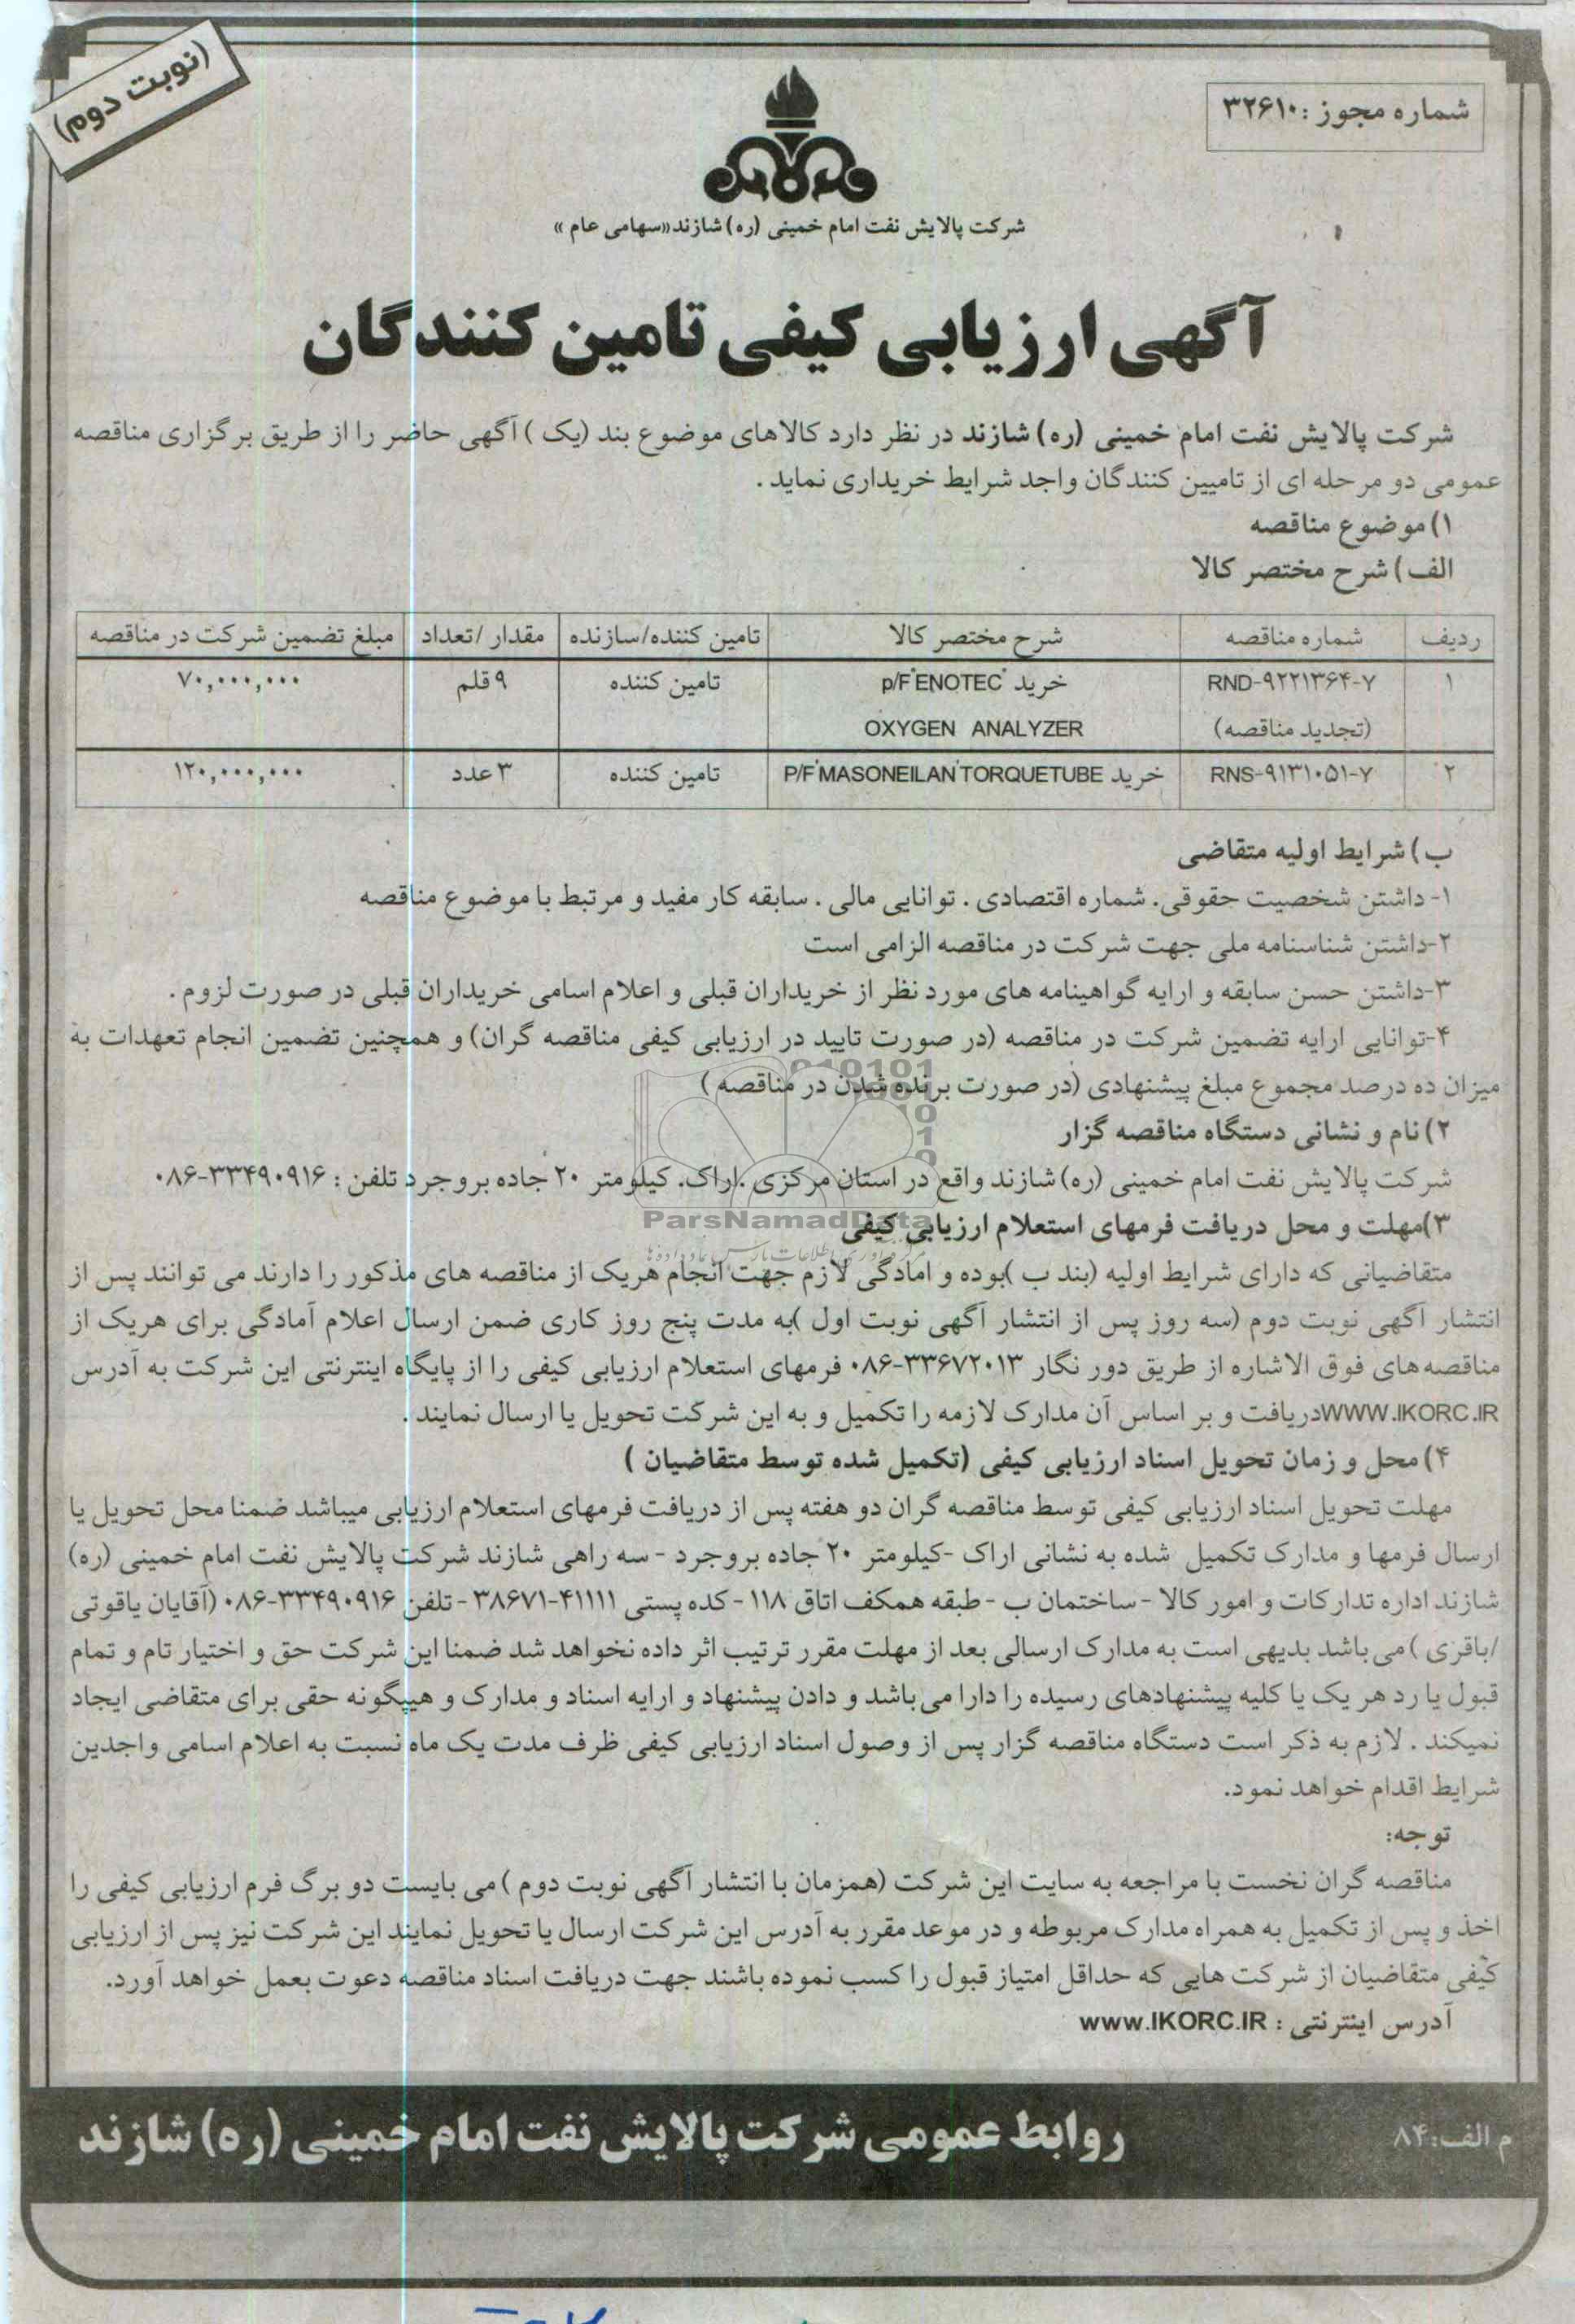 (نوبت دوم)
شماره مجوز : ۳۲۶۱۰
شرکت پالایش نفت امام خمینی (ره) شازند «سهامی عام »
آگهی ارزیابی کیفی تامین کنندگان
شرکت پالایش نفت امام خمینی (ره) شازند در نظر دارد کالاهای موضوع بند (یک ) آگهی حاضر را از طریق برگزاری مناقصه
عمومی دو مرحله ای از تامیین کنندگان واجد شرایط خریداری نماید .
۱) موضوع مناقصه
الف) شرح مختصر کالا
ردیف شماره مناقصه شرح مختصر کالا تامین کننده/سازنده مقدار /تعداد مبلغ تضمین شرکت در مناقصه
۱ RND-۹۲۲۱۳۶۴-۷ خرید "p/F"ENOTEC تامین کننده ۹ قلم ۷۰,۰۰۰,۰۰۰
(تجدید مناقصه) OXYGEN ANALYZER
۲ RNS-۹۱۳۱۰۵۱-۷ خرید P/F"MASONEILAN"TORQUETUBE تامین کننده ۳ عدد ۱۲۰,۰۰۰,۰۰۰
ب) شرایط اولیه متقاضی
۱- داشتن شخصیت حقوقی، شماره اقتصادی . توانایی مالی . سابقه کار مفید و مرتبط با موضوع مناقصه
۲-داشتن شناسنامه ملی جهت شرکت در مناقصه الزامی است
۳-داشتن حسن سابقه و ارایه گواهینامه های مورد نظر از خریداران قبلی و اعلام اسامی خریداران قبلی در صورت لزوم .
۴-توانایی ارایه تضمین شرکت در مناقصه (در صورت تایید در ارزیابی کیفی مناقصه گران) و همچنین تضمین انجام تعهدات به
میزان ده درصد مجموع مبلغ پیشنهادی (در صورت برنده شدن در مناقصه )
۲) نام و نشانی دستگاه مناقصه گزار
شرکت پالایش نفت امام خمینی (ره) شازند واقع در استان مرکزی .اراک. کیلومتر ۲۰ جاده بروجرد تلفن : ۳۳۴۹۰۹۱۶-۰۸۶
ParsNamadData
۳)مهلت و محل دریافت فرمهای استعلام ارزیابی کیفی
متقاضیانی که دارای شرایط اولیه (بند ب )بوده و امادگی لازم جهت انجام هریک از مناقصه های مذکور را دارند می توانند پس از
انتشار آگهی نوبت دوم (سه روز پس از انتشار آگهی نوبت اول )به مدت پنج روز کاری ضمن ارسال اعلام آمادگی برای هریک از
مناقصه های فوق الاشاره از طریق دور نگار ۳۳۶۷۲۰۱۳-۰۸۶ فرمهای استعلام ارزیابی کیفی را از پایگاه اینترنتی این شرکت به آدرس
WWW.IKORC.IRدریافت و بر اساس آن مدارک لازمه را تکمیل و به این شرکت تحویل یا ارسال نمایند .
۴) محل و زمان تحویل اسناد ارزیابی کیفی (تکمیل شده توسط متقاضیان )
مهلت تحویل اسناد ارزیابی کیفی توسط مناقصه گران دو هفته پس از دریافت فرمهای استعلام ارزیابی میباشد ضمنا محل تحویل یا
ارسال فرمها و مدارک تکمیل شده به نشانی اراک -کیلومتر ۲۰ جاده بروجرد - سه راهی شازند شرکت پالایش نفت امام خمینی (ره)
شازند اداره تدارکات و امور کالا - ساختمان ب - طبقه همکف اتاق ۱۱۸ - کده پستی ۴۱۱۱۱-۳۸۶۷۱ - تلفن ۳۳۴۹۰۹۱۶-۰۸۶ (آقایان یاقوتی
/باقری ) می باشد بدیهی است به مدارک ارسالی بعد از مهلت مقرر ترتیب اثر داده نخواهد شد ضمنا این شرکت حق و اختیار تام و تمام
قبول یا رد هر یک یا کلیه پیشنهادهای رسیده را دارا می باشد و دادن پیشنهاد و ارایه اسناد و مدارک و هیچگونه حقی برای متقاضی ایجاد
نمیکند . لازم به ذکر است دستگاه مناقصه گزار پس از وصول اسناد ارزیابی کیفی ظرف مدت یک ماه نسبت به اعلام اسامی واجدین
شرایط اقدام خواهد نمود.
توجه:
مناقصه گران نخست با مراجعه به سایت این شرکت (همزمان با انتشار آگهی نوبت دوم ) می بایست دو برگ فرم ارزیابی کیفی را
اخذ و پس از تکمیل به همراه مدارک مربوطه و در موعد مقرر به آدرس این شرکت ارسال یا تحویل نمایند این شرکت نیز پس از ارزیابی
کیفی متقاضیان از شرکت هایی که حداقل امتیاز قبول را کسب نموده باشند جهت دریافت اسناد مناقصه دعوت بعمل خواهد آورد.
آدرس اینترنتی : www.IKORC.IR
م الف:۸۴
روابط عمومی شرکت پالایش نفت امام خمینی (ره) شازند